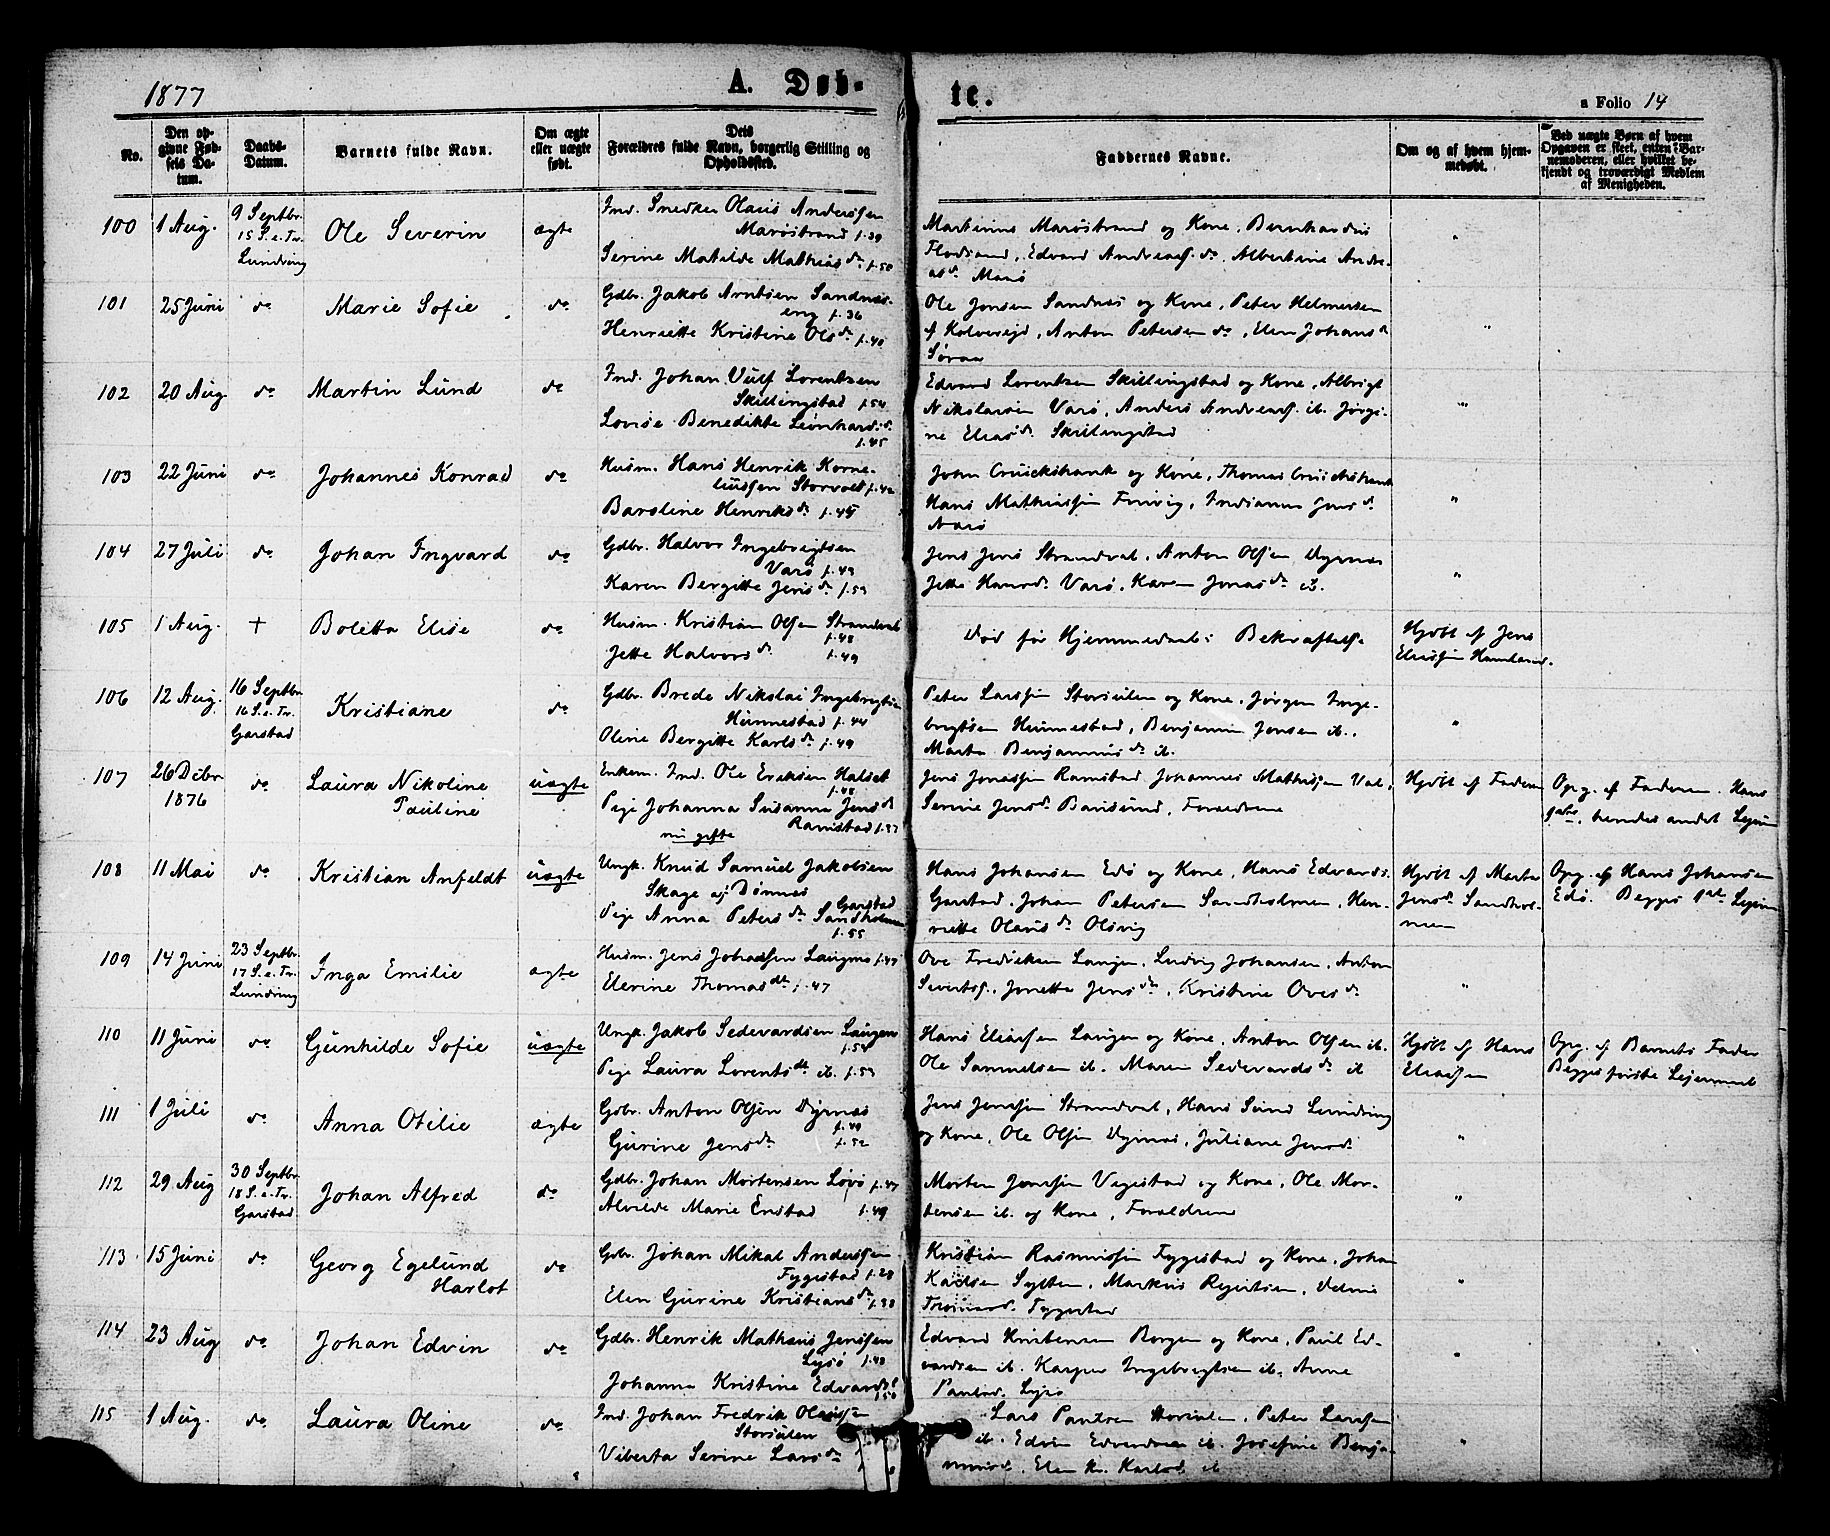 1877
A. Døb-
te.
a Folio 14
No.
Den op-
givne Fød-
sels Da-
tum.
Daabs-
Datum.
Barnets fulde Navn.
Om ægte
eller uægte
født.
Dets
Forældres fulde Navn, borgerlig Stilling og
Opholdssted.
Faddernes Navne.
Om og af hvem hjem-
medøbt.
Ved uægte Børn af hvem
Opgaven er skeet, enten Bar-
nemoderen, eller hvilket be-
kjendt og troværdigt Medlem
af Menigheden.
100 1 Aug. 9 Septbr. 15 S.e.Tr. Lundring Ole Severin ægte
Ind. Snedker Olaus Anderssen
Marøstrand f.39
Serine Matilde Mathias dr. f.50
Martinus Marøstrand og Kone, Bernhardus
Flodsand, Edvard Andreass. do, Albertine Andre-
as dr. Marø "
101 25 Juni do Marie Sofie do
Gdbr. Jakob Arntsen Sandnes-
eng f.36
Henriette Kristine Ols dr f.40
Ole Jonsen Sandnes og Kone, Peter Helmersen
af Kolvereid, Anton Petersen do, Elen Johans dr
Søraa "
102 20 Aug. do Martin Lund do
Ind. Johan Vulf Lorentzen
Skillingstad f.54
Lovise Benedikte Leonhards dr.
f.45
Edvard Lorentzen Skillingstad og Kone, Albrigt
Nikolaisen Varø, Anders Andreass. ib. Jørgi-
ne Elias dr. Skillingstad "
103 22 Juni do Johannes Konrad do
Husm. Hans Henrik Korne-
liussen Storvolt f.42
Baroline Henriks dr f.45
John Cruickshank og Kone, Thomas Cruickshank
Hans Mathiassen Finvig, Indianna Jens dr
Narø "
104 27 Juli do Johan Ingvard do
Gdbr. Halvor Ingebrigtsen
Varø f.49
Karen Bergitte Jens dr f.53
Jens Jens Strandval, Anton Olsen Dyrnes
Jette Hans dr. Varø, Karen Jonas dr ib. "
105 1 Aug. + Boletta Elise do
Husm. Kristian Olsen Strandval
f.48
Jette Halvors dr f.49
Død før Hjemmedaabs Bekræftelse
Hjdbt af Jens
Eliassen Hamland.
106 12 Aug. 16 Septbr. 16 S.e.Tr. Garstad Kristiane do
Gdbr. Brede Nikolai Ingebrigtsen
Hunnestad f.44
Oline Bergitte Karls dr f.49
Peter Larssen Storsulen og Kone, Jørgen Inge-
brigtsen Hunnestad, Benjamin Jensen ib.,
Marta Benjamins dr ib. "
107 26 Dcbr. 1876 do Laura Nikoline Pauline uægte
Enkem. Ind. Ole Eriksen Halset
f.48
Pige Johanna Susanna Jens dr
Ramstad f.37
nu gifte
Jens Jonassen Ramstad Johannes Mathisen Val,
Serine Jens dr. Barøsund, Forældrene
Hjdbt af Faderen
Opg. af Faderen. Hans
, hendes andet Lejerm
108 11 Mai do Kristian Anfeldt uægte
Ungk. Knud Samuel Jakobsen
Skage af Dønnes
Garstad
Pige Anna Peters dr Sandholmen
f.55
Hans Johansen Edø og Kone, Hans Edvards.
Garstad, Johan Petersen Sandholmen, Hen-
riette Olaus dr Olsvig
Hjdbt af Marta
Jens dr. Sandhol-
men
Opg. af Hans Johansen
Edø. Begges 1ste Lejerm
109 14 Juni 23 Septbr. 17 S.e.Tr. Lundring Inga Emilie ægte
Husm. Jens Johansen Laugnes f.47
Elerine Thomas dtr f.47
Ove Fredriksen Laugen, Ludvig Johansen, Anton
Sivertsg., Jonetta Jens dtr, Kristine Oves dr "
110 11 Juni do Gunhilde Sofie uægte
Ungk. Jakob Sedevardsen Laugen
f.54
Pige Laura Lorents dtr ib. f.53
Hans Eliassen Laugen og Kone, Anton Olsen ib.
Ole Samuelsen ib. Maren Sedevards dr ib
Hjdbt af Hans
Eliassen
Opg. af Barnets Fader
Begges første Lejermaal
111 1 Juli do Anna Otilie ægte
Gdbr. Anton Olsen Dyrnes
f.49
Gurine Jens dr f.52
Jens Jenssen Strandval, Hans Sund Lundring
og Kone, Ole Olsen Dyrnes, Juliane Jensd. "
112 29 Aug 30 Septbr. 18 S.e.Tr. Garstad Johan Alfred do
Gdbr. Johan Mortensen Løvø f.47
Alvilde Marie Enstad f.49
Morten Jenssen Vegestad og Kone, Ole Mor-
tensen ib. og Kone, Forældrene "
113 15 Juni do Georg Egelund Harlot do
Gdbr. Johan Mikal Anderssen
Fyggestad f.28
Elen Gurine Kristians dr f.38
Kristian Rasmussen Fyggestad og Kone, Johan
Karlsen Sylten, Markus Rejertsen,
Fyggestad "
114 23 Aug do Johan Edvin do
Gdbr. Henrik Mathias Jenssen
Lysø f.48
Johanna Kristine Edvards
f.50
Edvard Kristensen Borgen og Kone, Paul Ed-
vardsen ib. Kasper Ingebrigtsen ib. Anne
Paulsd. Lysø "
115 1 Aug. do Laura Oline do
Ind. Johan Fredrik Olaussen
Storsulen
Viberta Serine Lars dr
Lars Paulsen Storsulen, Peter Larssen
ib. Edvin Edvardsen ib. Josefine Benja-
minsd., Elen K. Karlsd. ib "